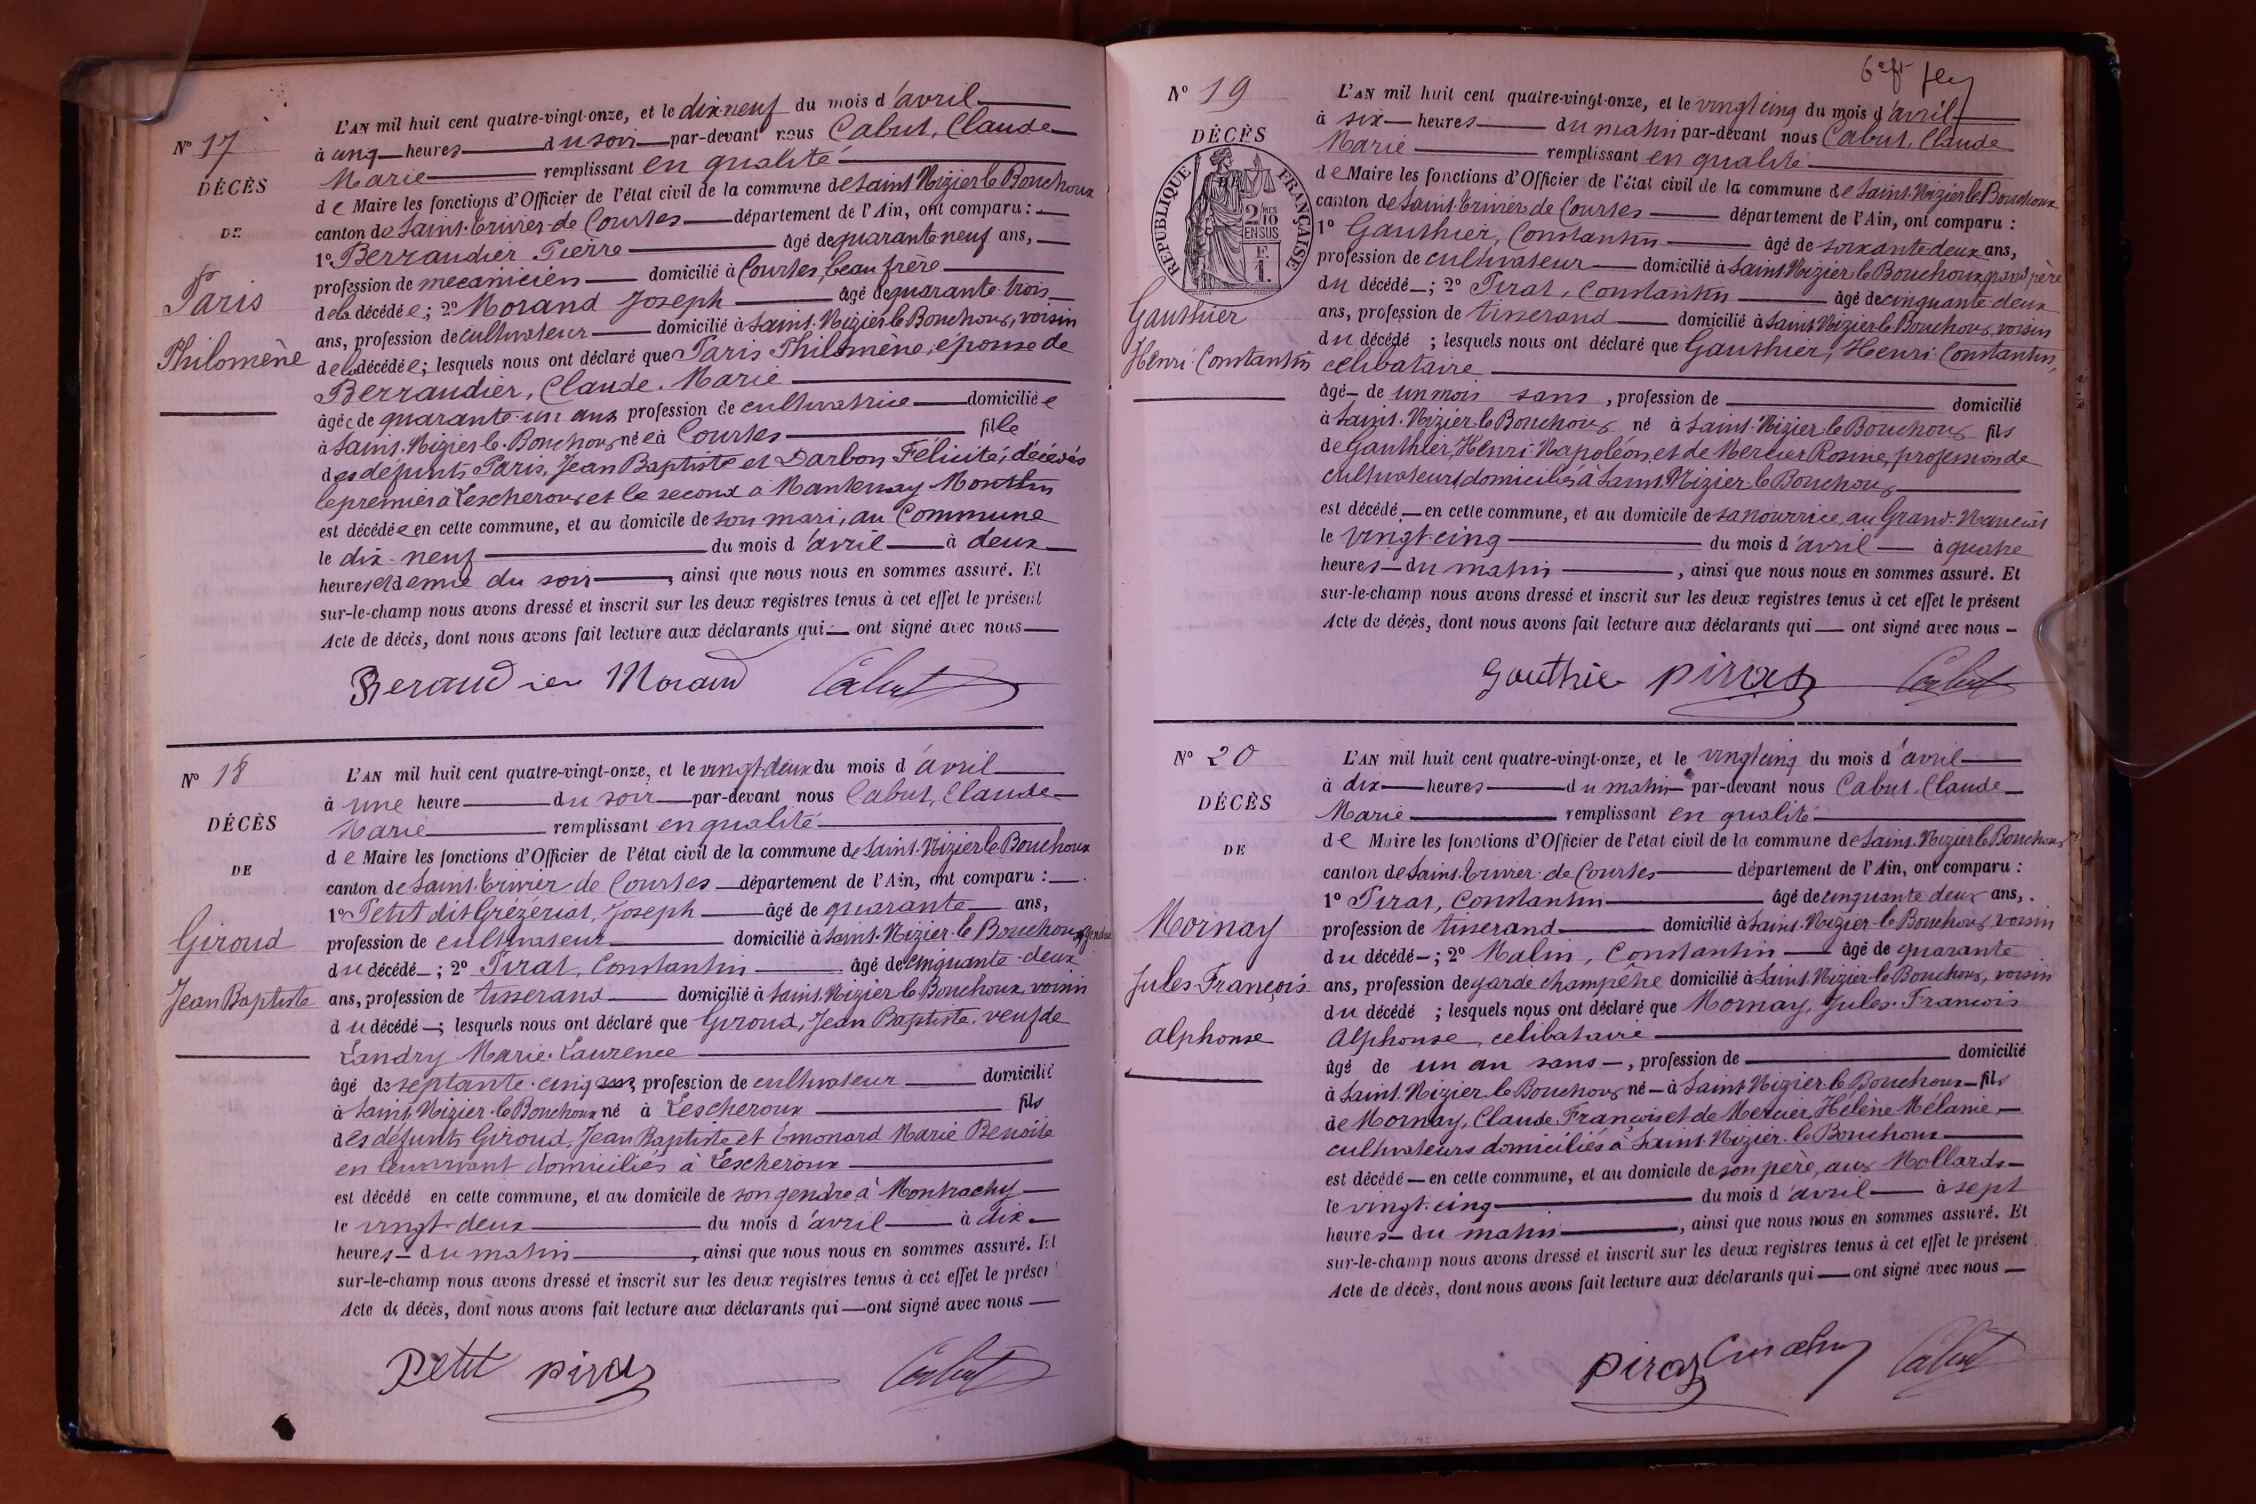 Nº 17
DÉCÈS
DE
Paris
Philomène
L'AN mil huit cent quatre-vingt-onze, et le dix-neuf du mois d'avril
à cinq heures du soir par-devant nous Cabut, Claude
Marie remplissant en qualité
de Maire les fonctions d'Officier de l'état civil de la commune de Saint-Nizier le Bouchoux
canton de Saint-Trivier-de Courtes département de l'Ain, ont comparu :
1º Berraudier Pierre âgé de quarante neuf ans,
profession de mecanicien domicilié à Courtes, beau frère
de la décédée ; 2º Morand Joseph âgé de quarante-trois
ans, profession de cultivateur domicilié à Saint-Nizier le Bouchoux, voisin
de la décédée ; lesquels nous ont déclaré que Paris Philomène, épouse de
Berraudier, Claude-Marie
âgée de quarante-un ans profession de cultivatrice domiciliée
à Saint-Nizier-le-Bouchoux née à Courtes fille
des défunts Paris, Jean Baptiste et Darbon Félicité, décédés
le premier à Lescheroux et le second à Mantenay Montlin
est décédée en cette commune, et au domicile de son mari, au Commune
le dix-neuf du mois d'avril à deux
heures et demie du soir, ainsi que nous nous en sommes assuré. Et
sur-le-champ nous avons dressé et inscrit sur les deux registres tenus à cet effet le présent
Acte de décès, dont nous avons fait lecture aux déclarants qui ont signé avec nous
Beraudier Morand Cabut
Nº 18
DÉCÈS
DE
Giroud
Jean Baptiste
L'AN mil huit cent quatre-vingt-onze, et le vingt-deux du mois d'avril
à une heure du soir par-devant nous Cabut, Claude
Marie remplissant en qualité
de Maire les fonctions d'Officier de l'état civil de la commune de Saint-Nizier le Bouchoux
canton de Saint-Trivier-de Courtes département de l'Ain, ont comparu :
1º Petit dit Grézériat, Joseph âgé de quarante ans,
profession de cultivateur domicilié à Saint-Nizier-le Bouchoux, gendre
du décédé ; 2º Pirat, Constantin âgé de cinquante-deux
ans, profession de tisserand domicilié à Saint Nizier le Bouchoux voisin
du décédé ; lesquels nous ont déclaré que Giroud, Jean Baptiste, veuf de
Landry Marie-Laurence
âgé de septante-cinq ans, profession de cultivateur domicilié
à Saint-Nizier-le Bouchoux né à Lescheroux fils
des défunts Giroud, Jean Baptiste et Emonard Marie Benoite
en leur vivant domiciliés à Lescheroux
est décédé en cette commune, et au domicile de son gendre à Montrachy
le vingt-deux du mois d'avril à dix
heures du matin, ainsi que nous nous en sommes assuré. Et
sur-le-champ nous avons dressé et inscrit sur les deux registres tenus à cet effet le présent
Acte de décès, dont nous avons fait lecture aux déclarants qui ont signé avec nous
Petit pirat Cabut
Nº 19
DÉCÈS
RÉPUBLIQUE FRANÇAISE
2/10 EN SUS
F. 1.
Gauthier
Henri Constantin
L'AN mil huit cent quatre-vingt-onze, et le vingt cinq du mois d'avril
à six heures du matin par-devant nous Cabut, Claude
Marie remplissant en qualité
de Maire les fonctions d'Officier de l'état civil de la commune de Saint-Nizier le Bouchoux
canton de Saint-Trivier de Courtes département de l'Ain, ont comparu :
1º Gauthier, Constantin âgé de soixante deux ans,
profession de cultivateur domicilié à Saint Nizier le Bouchoux grand père
du décédé ; 2º Pirat, Constantin âgé de cinquante-deux
ans, profession de tisserand domicilié à Saint Nizier le Bouchoux, voisin
du décédé ; lesquels nous ont déclaré que Gauthier, Henri Constantin,
célibataire
âgé de un mois sans, profession de domicilié
à Saint-Nizier le Bouchoux né à Saint-Nizier le Bouchoux fils
de Gauthier, Henri Napoléon et de Mercier Rosine, profession de
cultivateurs domiciliés à Saint-Nizier le Bouchoux
est décédé en cette commune, et au domicile de sa nourrice, au Grand-
le vingt-cinq du mois d'avril à quatre
heures du matin, ainsi que nous nous en sommes assuré. Et
sur-le-champ nous avons dressé et inscrit sur les deux registres tenus à cet effet le présent
Acte de décès, dont nous avons fait lecture aux déclarants qui ont signé avec nous
Gauthie pirat Cabut
Nº 20
DÉCÈS
DE
Mornay
Jules François
alphonse
L'AN mil huit cent quatre-vingt-onze, et le vingt cinq du mois d'avril
à dix heures du matin par-devant nous Cabut, Claude
Marie remplissant en qualité
de Maire les fonctions d'Officier de l'état civil de la commune de Saint-Nizier le Bouchoux
canton de Saint-Trivier-de Courtes département de l'Ain, ont comparu :
1º Pirat, Constantin âgé de cinquante deux ans,
profession de tisserand domicilié à Saint-Nizier-le Bouchoux, voisin
du décédé ; 2º Malin, Constantin âgé de quarante
ans, profession de garde champêtre domicilié à Saint-Nizier-le-Bouchoux, voisin
du décédé ; lesquels nous ont déclaré que Mornay, Jules-François
Alphonse, célibataire
âgé de un an sans, profession de domicilié
à Saint-Nizier-le Bouchoux né à Saint Nizier le Bouchoux fils
de Mornay, Claude François et de Mercier, Hélène Mélanie
cultivateurs domiciliés à Saint-Nizier-le Bouchoux
est décédé en cette commune, et au domicile de son père, aux Mollards
le vingt-cinq du mois d'avril à sept
heures du matin, ainsi que nous nous en sommes assuré. Et
sur-le-champ nous avons dressé et inscrit sur les deux registres tenus à cet effet le présent
Acte de décès, dont nous avons fait lecture aux déclarants qui ont signé avec nous
pirat Cabut